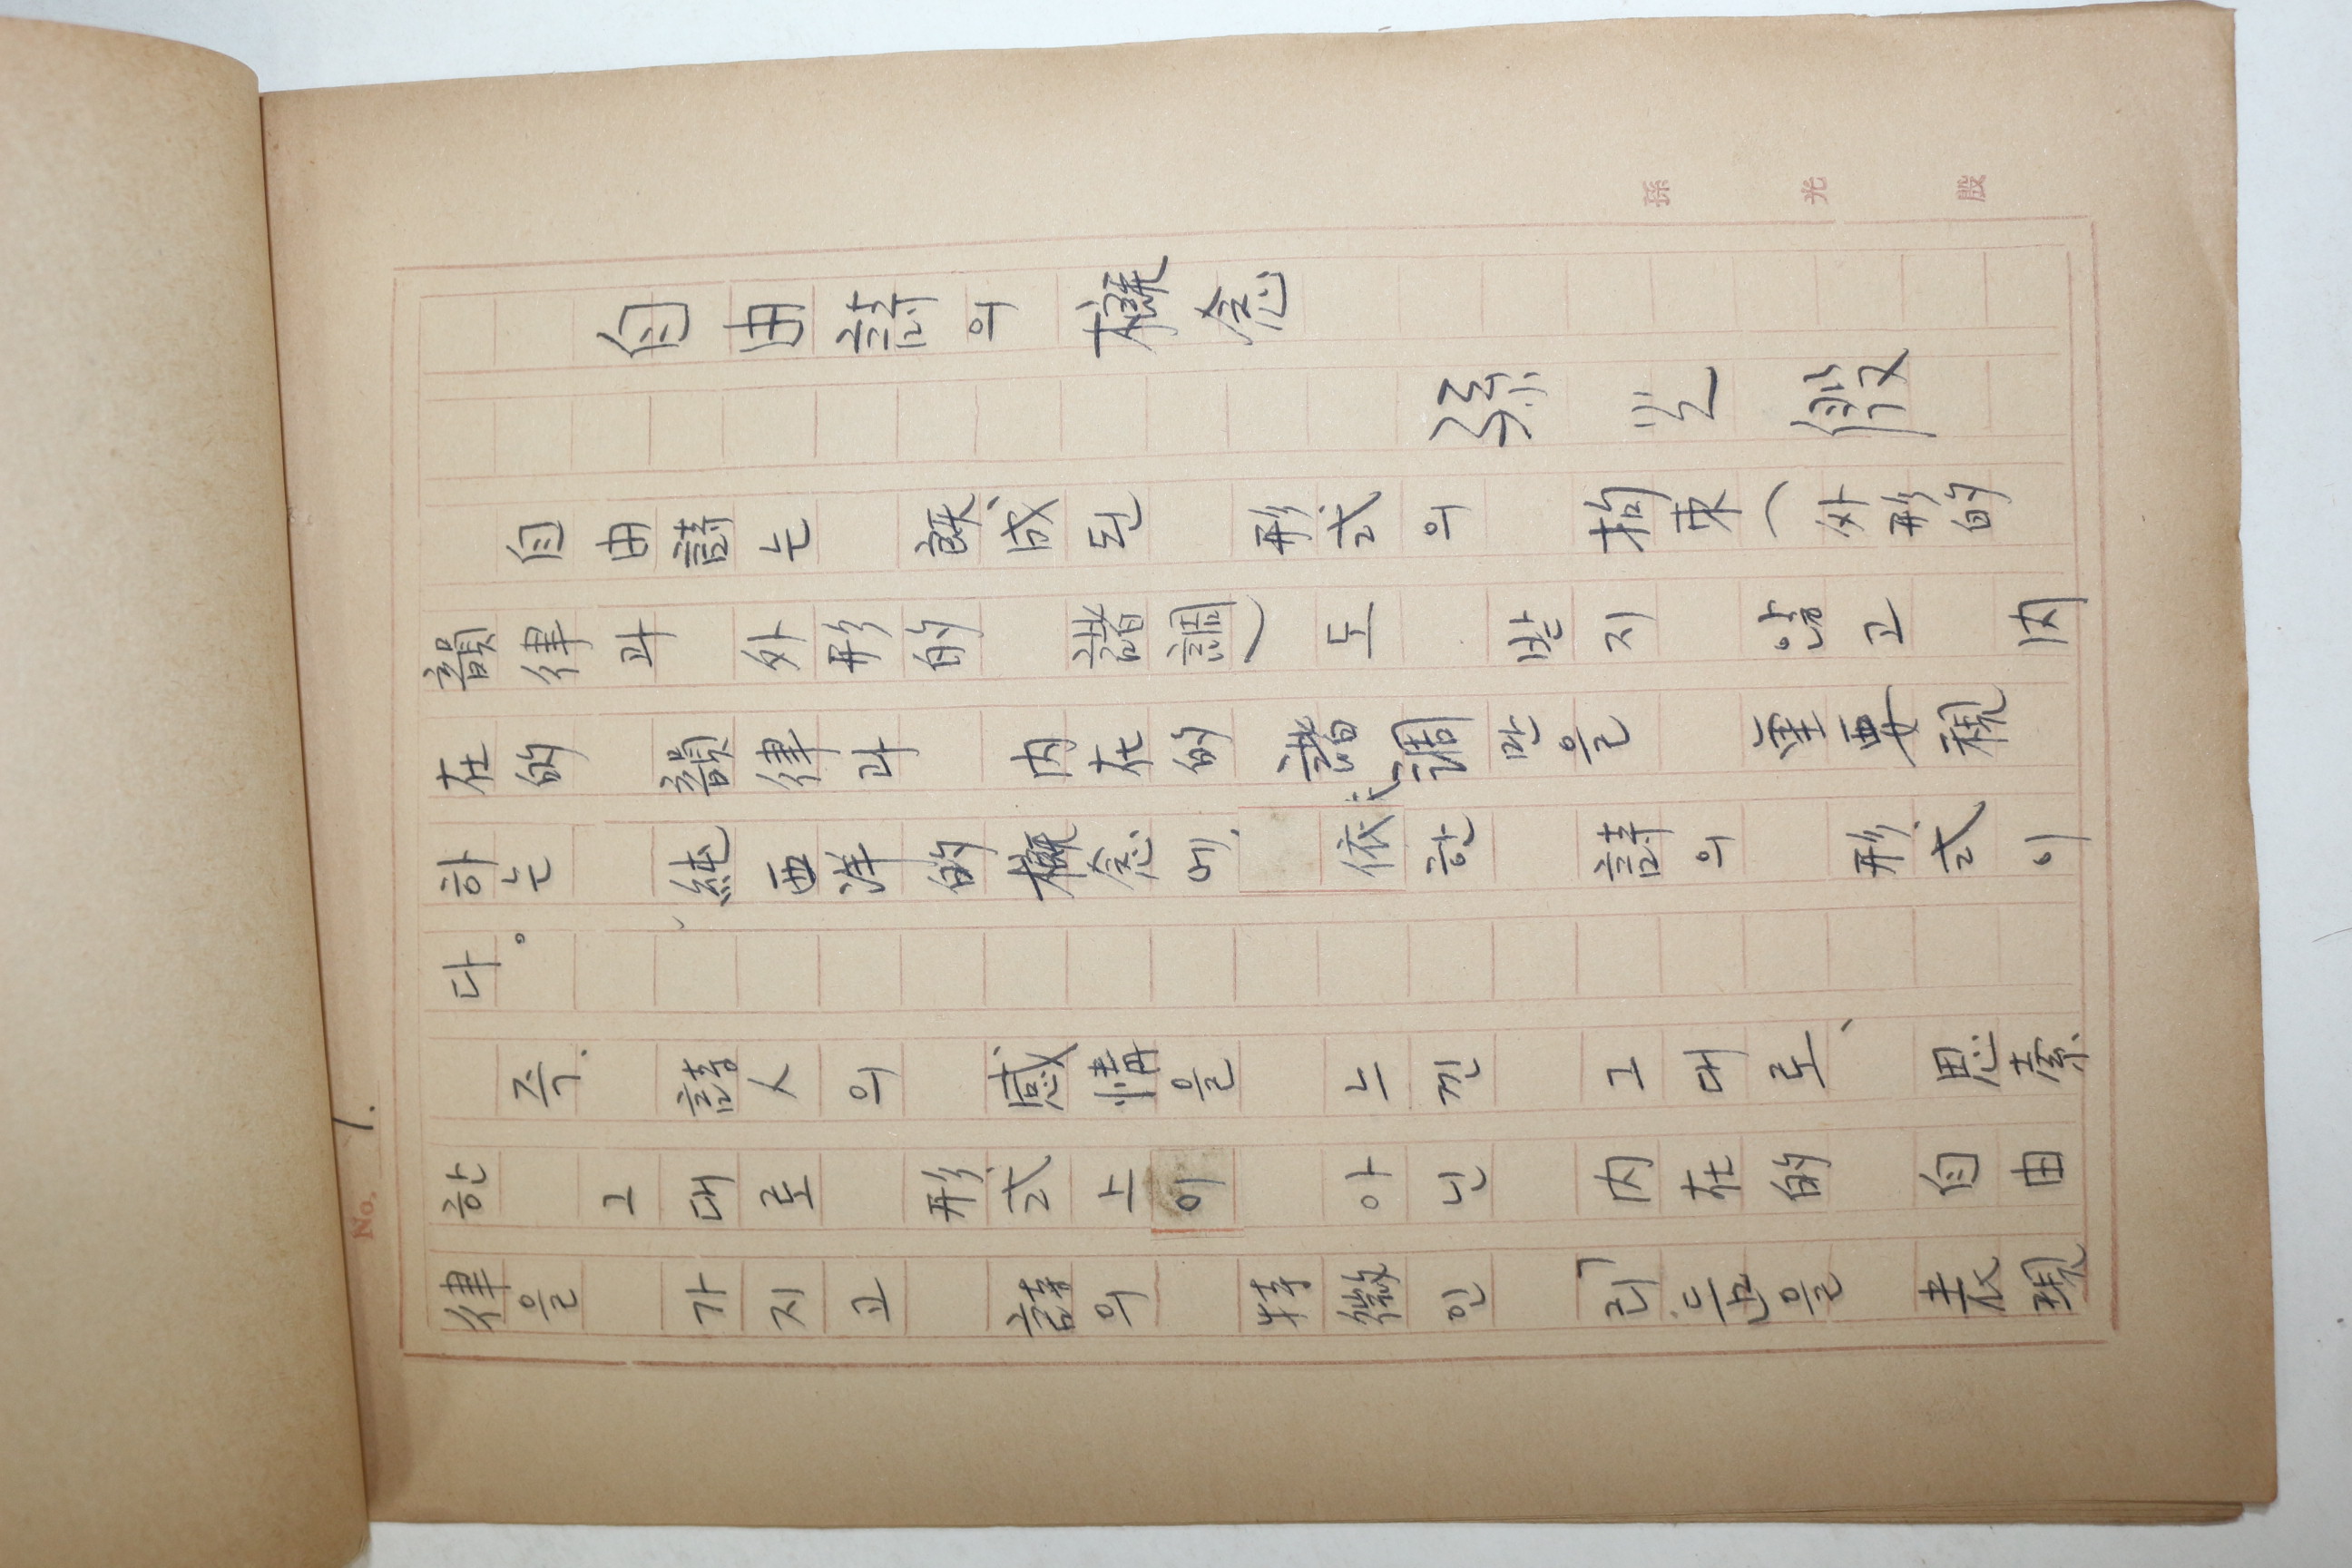 No. 1.
自由詩의 槪念
孫光殷
自由詩는 旣成된 形式의 拘束(外形的
韻律과 外形的 諧調)도 받지 않고 內
在的 韻律과 內在的 諧調만을 重要視
하는 純西洋的槪念에, 依한 詩의 形式이
다。
즉. 詩人의 感情을 느낀 그대로、思索
한 그대로 形式上이 아닌 內在的 自由
律을 가지고 詩의 特徵인 「리듬을 表現
孫光殷